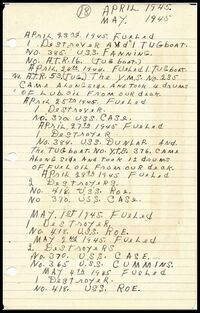 (13) APRIL 1945.
MAY. 1945
APRIL 23th 1945. FUELED
1 DESTROYER AND 1 TUGBOAT.
NO. 385. U.S.S. FANNING.
NO. A.T.R. 16. (TUGBOAT)
APRIL 24th 1945. FUELED 1 TUGBOAT.
NO. A.T.R. 53 (TUG) THE Y.M.S. NO. 235
CAME ALONGSIDE AND TOOK 4 DRUMS
OF LUBOIL FROM OUR DECK.
APRIL 25th 1945. FUELED
1 DESTROYER.
NO. 370. U.S.S. CASE.
APRIL 27th 1945. FUELED
1 DESTROYER.
NO. 384. U.S.S. DUNLAP. AND.
THE TUGBOAT NO. Y.T.B. 376. CAME
ALONGSIDE AND TOOK 12 DRUMS
OF FUEL OIL FROM OUR DECK.
APRIL 29th 1945. FUELED
2 DESTROYERS.
NO. 418. U.S.S. ROE.
NO 370. U.S.S. CASE.
MAY. 1ST 1945. FUELED
1 DESTROYER.
NO. 418. U.S.S. ROE.
MAY 2nd 1945. FUELED
2 DESTROYERS
NO. 370. U.S.S. CASE.
NO. 365 U.S.S. CUMMINS.
MAY 4th 1945 FUELED
1 DESTROYER.
NO. 418. U.S.S. ROE.